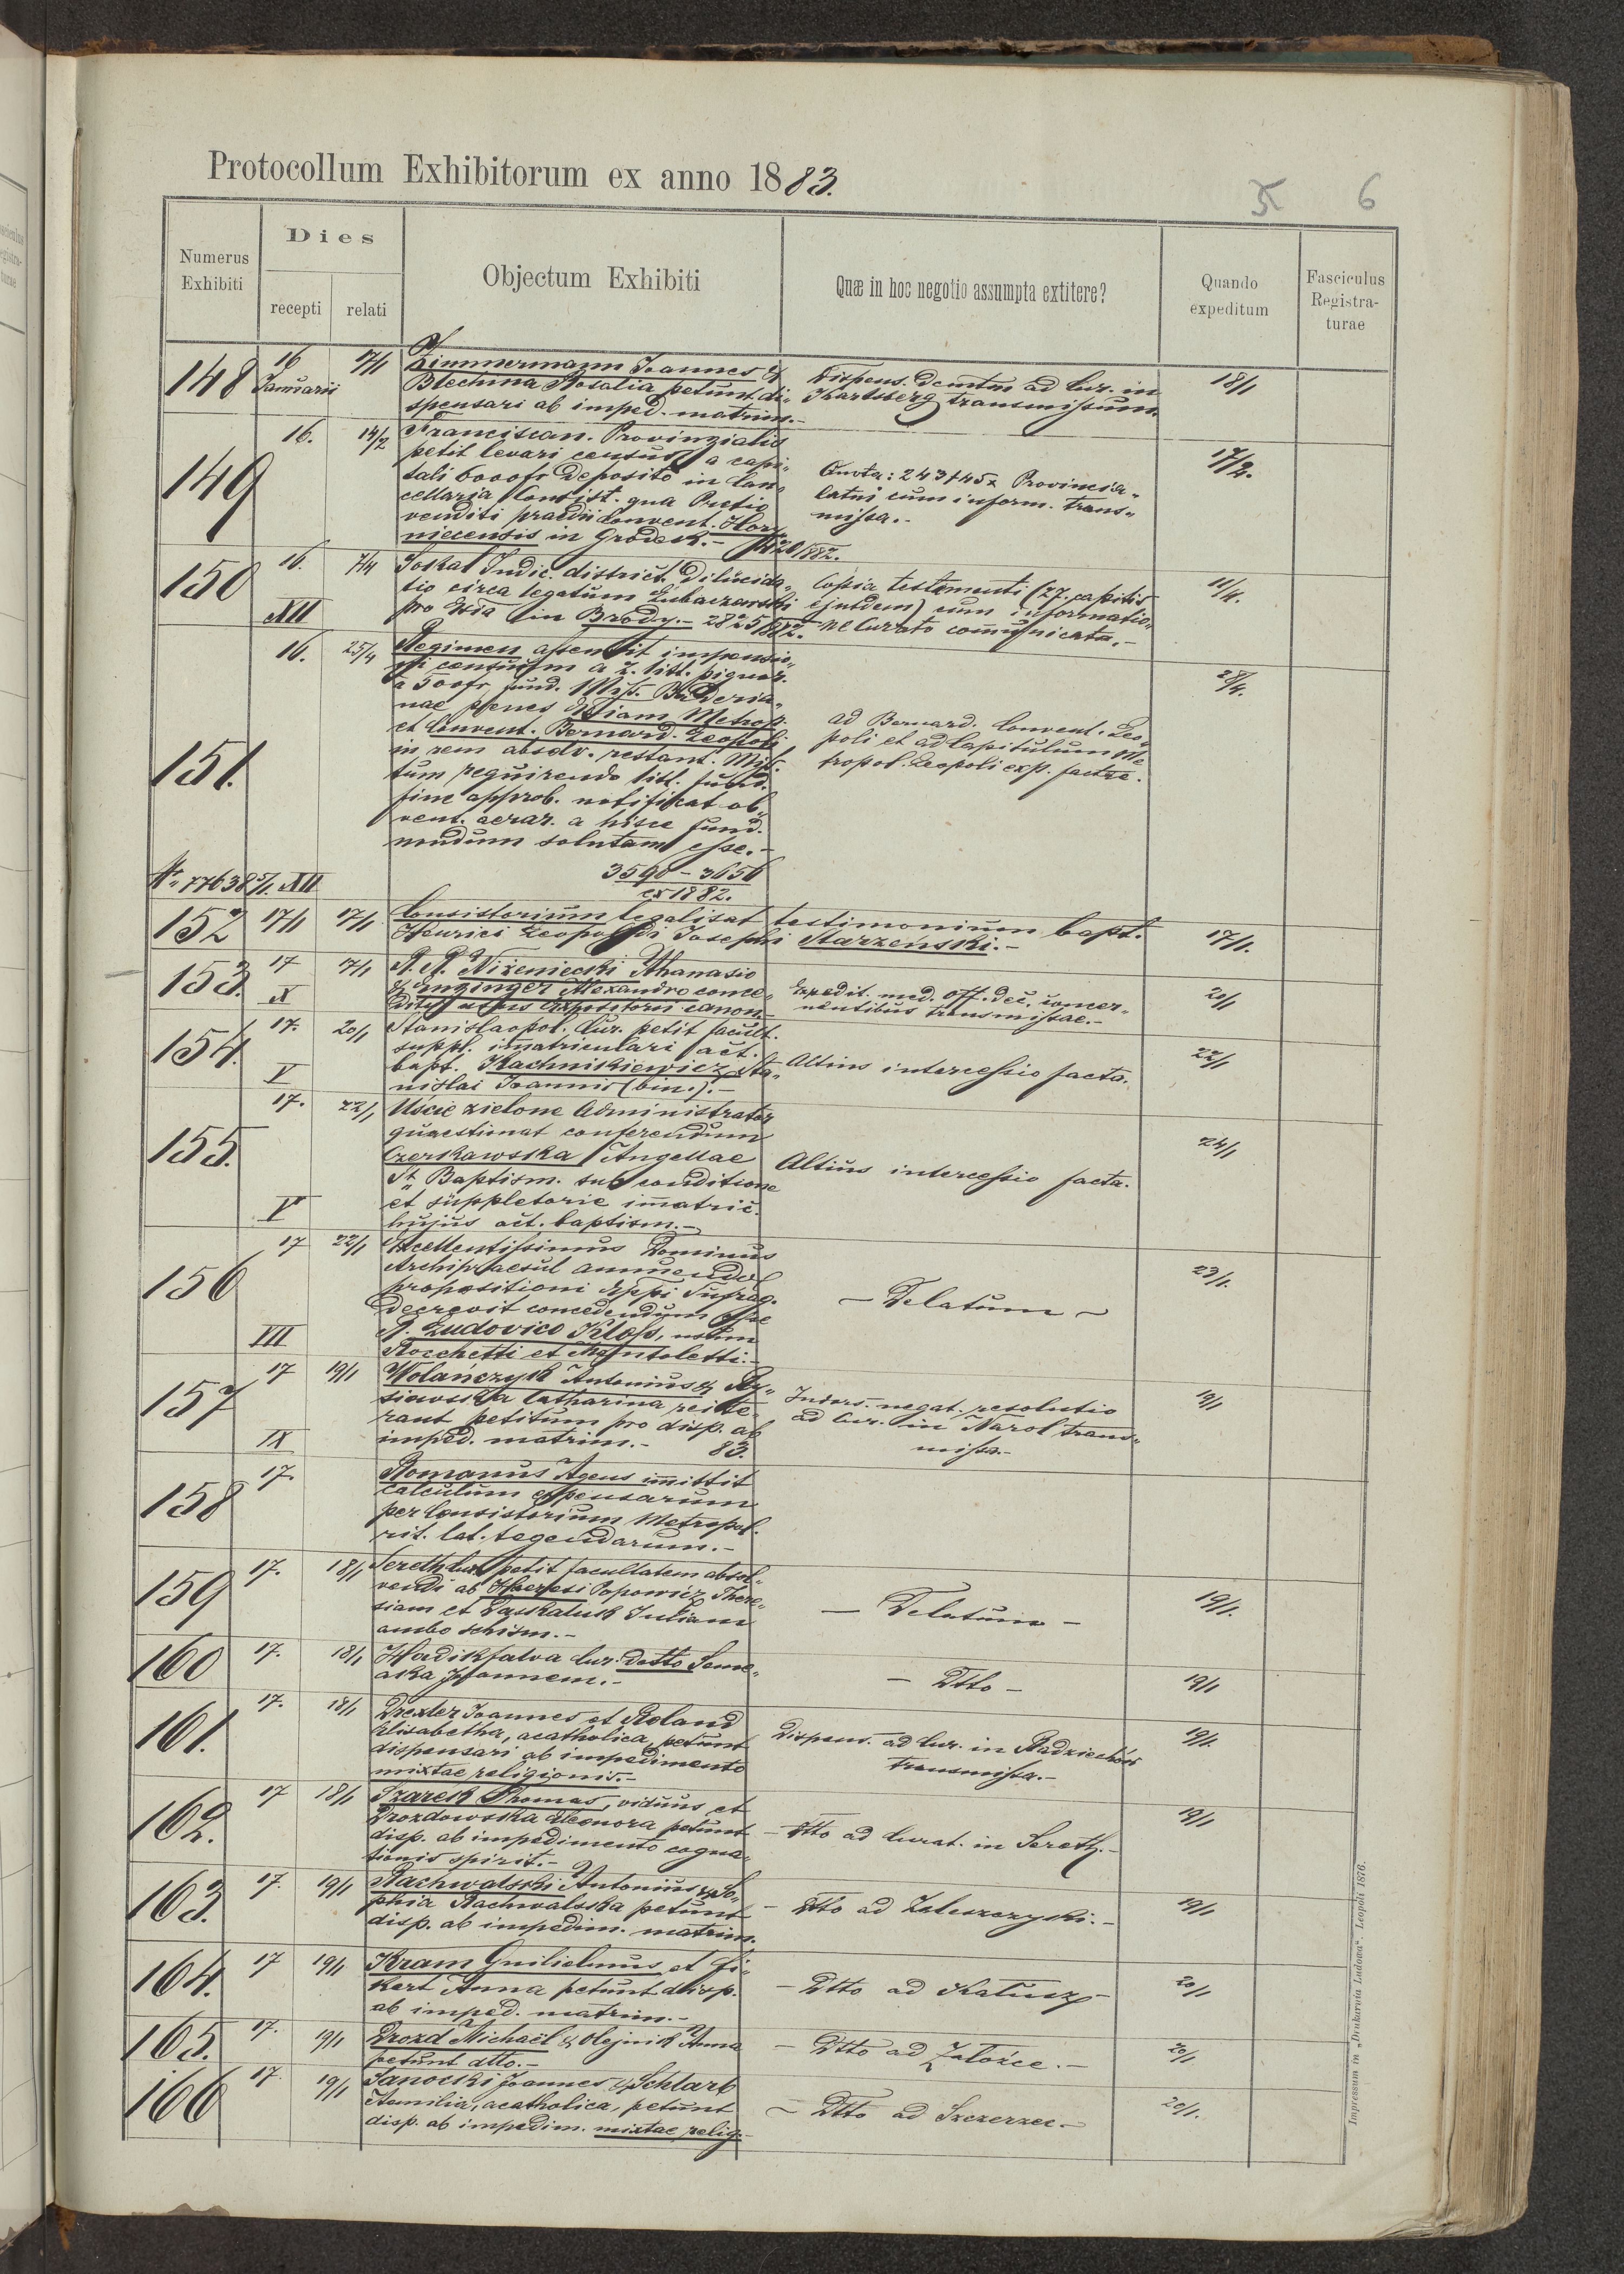 Protocollum Exhibitorum ex anno 1883.
6
Numerus Exhibiti
Dies
recepti
relati
Objectum Exhibiti
Quæ in hoc negotio assumpta extitere?
Quando expeditum
Fasciculus Registra-
turae
148
16 Januarii
17/1
Zimmermann Joannes &
Blechma Rosalia petunt di-
spensari ab imped. matrim.-
Dispens. ad Cur. in
transmissum
18/1
149
16.
14/2
Franciscan. Provinzialis
petit levari census a capi-
tali 6000fr deposito in Can-
cellaria Consist. qua Pretio
venditi praedii Convent. Hory-
niecensis in Grodek.-
Quota: 243f45x Provincia-
latui cum inform. trans-
missa.-
17/2.
150
16.
XII
7/4
Skalat Judic. district. Dilucida-
tio circa legatum
pro in Brody.- 2825/882.
Copia testamenti (27. capitis
ejusdem) cum informatio-
ne Curato communicata.-
11/4.
151.
16.
25/4
Regimen assentit
censuum a 2. litt. pignor.
a 500fr fund. Miss.
nae penes Metrop.
et Convent. Bernard. Leopoli
in rem absolv. restant. Miss.
tum requirendo litt. fund.
fine approb. notificat ob-
vent. aerar. a hisce fund.
nondum solutam esse.-
3590 - 3656
ex 1882.
ad Bernard. Convent. Leo-
poli et ad Capitulum Me-
tropol. Leopoli exp. factae.
28/4.
№ 77638 XII
152
17/1
17/1
Consistorium legalisat testimonium bapt.
Henrici Leopoldi Josephi Starzeński.-
17/1.
153.
17
X
17/1
R. R. Niżeniecki Athanasio
& Enzinger Alexandro conce-
ditur usus Expositorii canon.-
Expedit. med. off. dec. concer-
nentibus transmissae.-
20/1
154.
17.
V
20/1
Stanislaopol. Cur. petit facult.
suppl. immatriculari act.
bapt. Kachnikiewicz Sta-
nislai Joannis (bin.).-
Altius intercessio facta.
22/1
155.
17.
V
22/1
Uście zielone Administrator
quaestionat conferendum
Czerkawska Angellae
St. Baptism. sub conditione
et suppletorie immatric.
hujus act. baptism.-
Altius intercessio facta.
24/1
156
17
VII
22/1
Excellentissimus Dominus
Archipraesul annuendo
propositioni Eppi Sufrag.
decrevit concedendum esse
R. Ludovico Kloss, usum
Rocchetti et Mantoletti.-
- Delatum -
23/1.
157
17
IX
19/1
Wolańczyk Antonius &
Catharina reite-
rant petitum pro disp. ab
imped. matrim.- 83.
Indors. negat. resolutio
ad Cur. in Narol trans-
missa.-
19/1
158
17.
Romanus Agens immittit
calculum expensarum
per Consistorium Metropol.
rit. lat. tegendarum.-
159
17.
18/1
Sereth Cur. petit facultatem absol-
vendi ab Haeresi Popowicz There-
siam et Daskaliuk Juliam
ambo schism.-
- Delatum -
19/1.
160
17.
18/1
Hadikfalva Cur. detto Seme-
aska Joannem.-
- Dtto -
19/1
161.
17.
18/1
Drexler Joannes et Roland
Elisabetha, acatholica, petunt
dispensari ab impedimento
mixtae religionis.-
Dispens. ad Cur. in Radziechów
transmissa.-
19/1.
162.
17
18/1
Szarek Thomas, viduus et
Drozdowska Eleonora petunt
disp. ab impedimento cogna-
tionis spirit.-
- Dtto ad Curat. in Sereth.-
19/1
163.
17.
19/1
Rachwalski Antonius & So-
phia Rachwalska petunt
disp. ab impedim. matrim.
- Dtto ad Zaleszczyki.-
19/1
164.
17
19/1
Kram Guilielmus et Fi-
kert Anna petunt disp.
ab imped. matrim.-
- Dtto ad Kałusz -
20/1
165.
17.
19/1
Drozd Michaël & Olejnik Anna
petunt dtto.-
- Dtto ad Załoźce.-
20/1
166
17.
19/1
Sanocki Joannes & Schlarb
Aemilia, acatholica, petunt
disp. ab impedim. mixtae relig.-
- Dtto ad Szczerzec.-
20/1.
Impressum in „Drukarnia Ludowa“. Leopoli 1876.